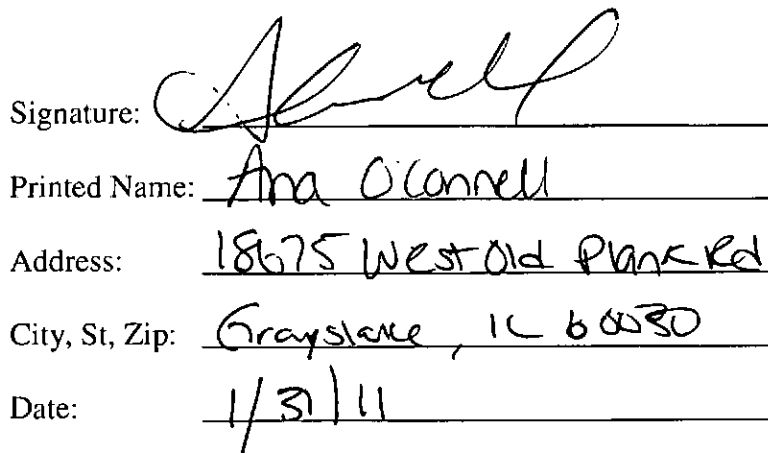 Signature:
Printed Name: Ana O'Connell
Address: 18675 West Old Plank Rd
City, St, Zip: Grayslake, IL 60030
Date: 1/31/11